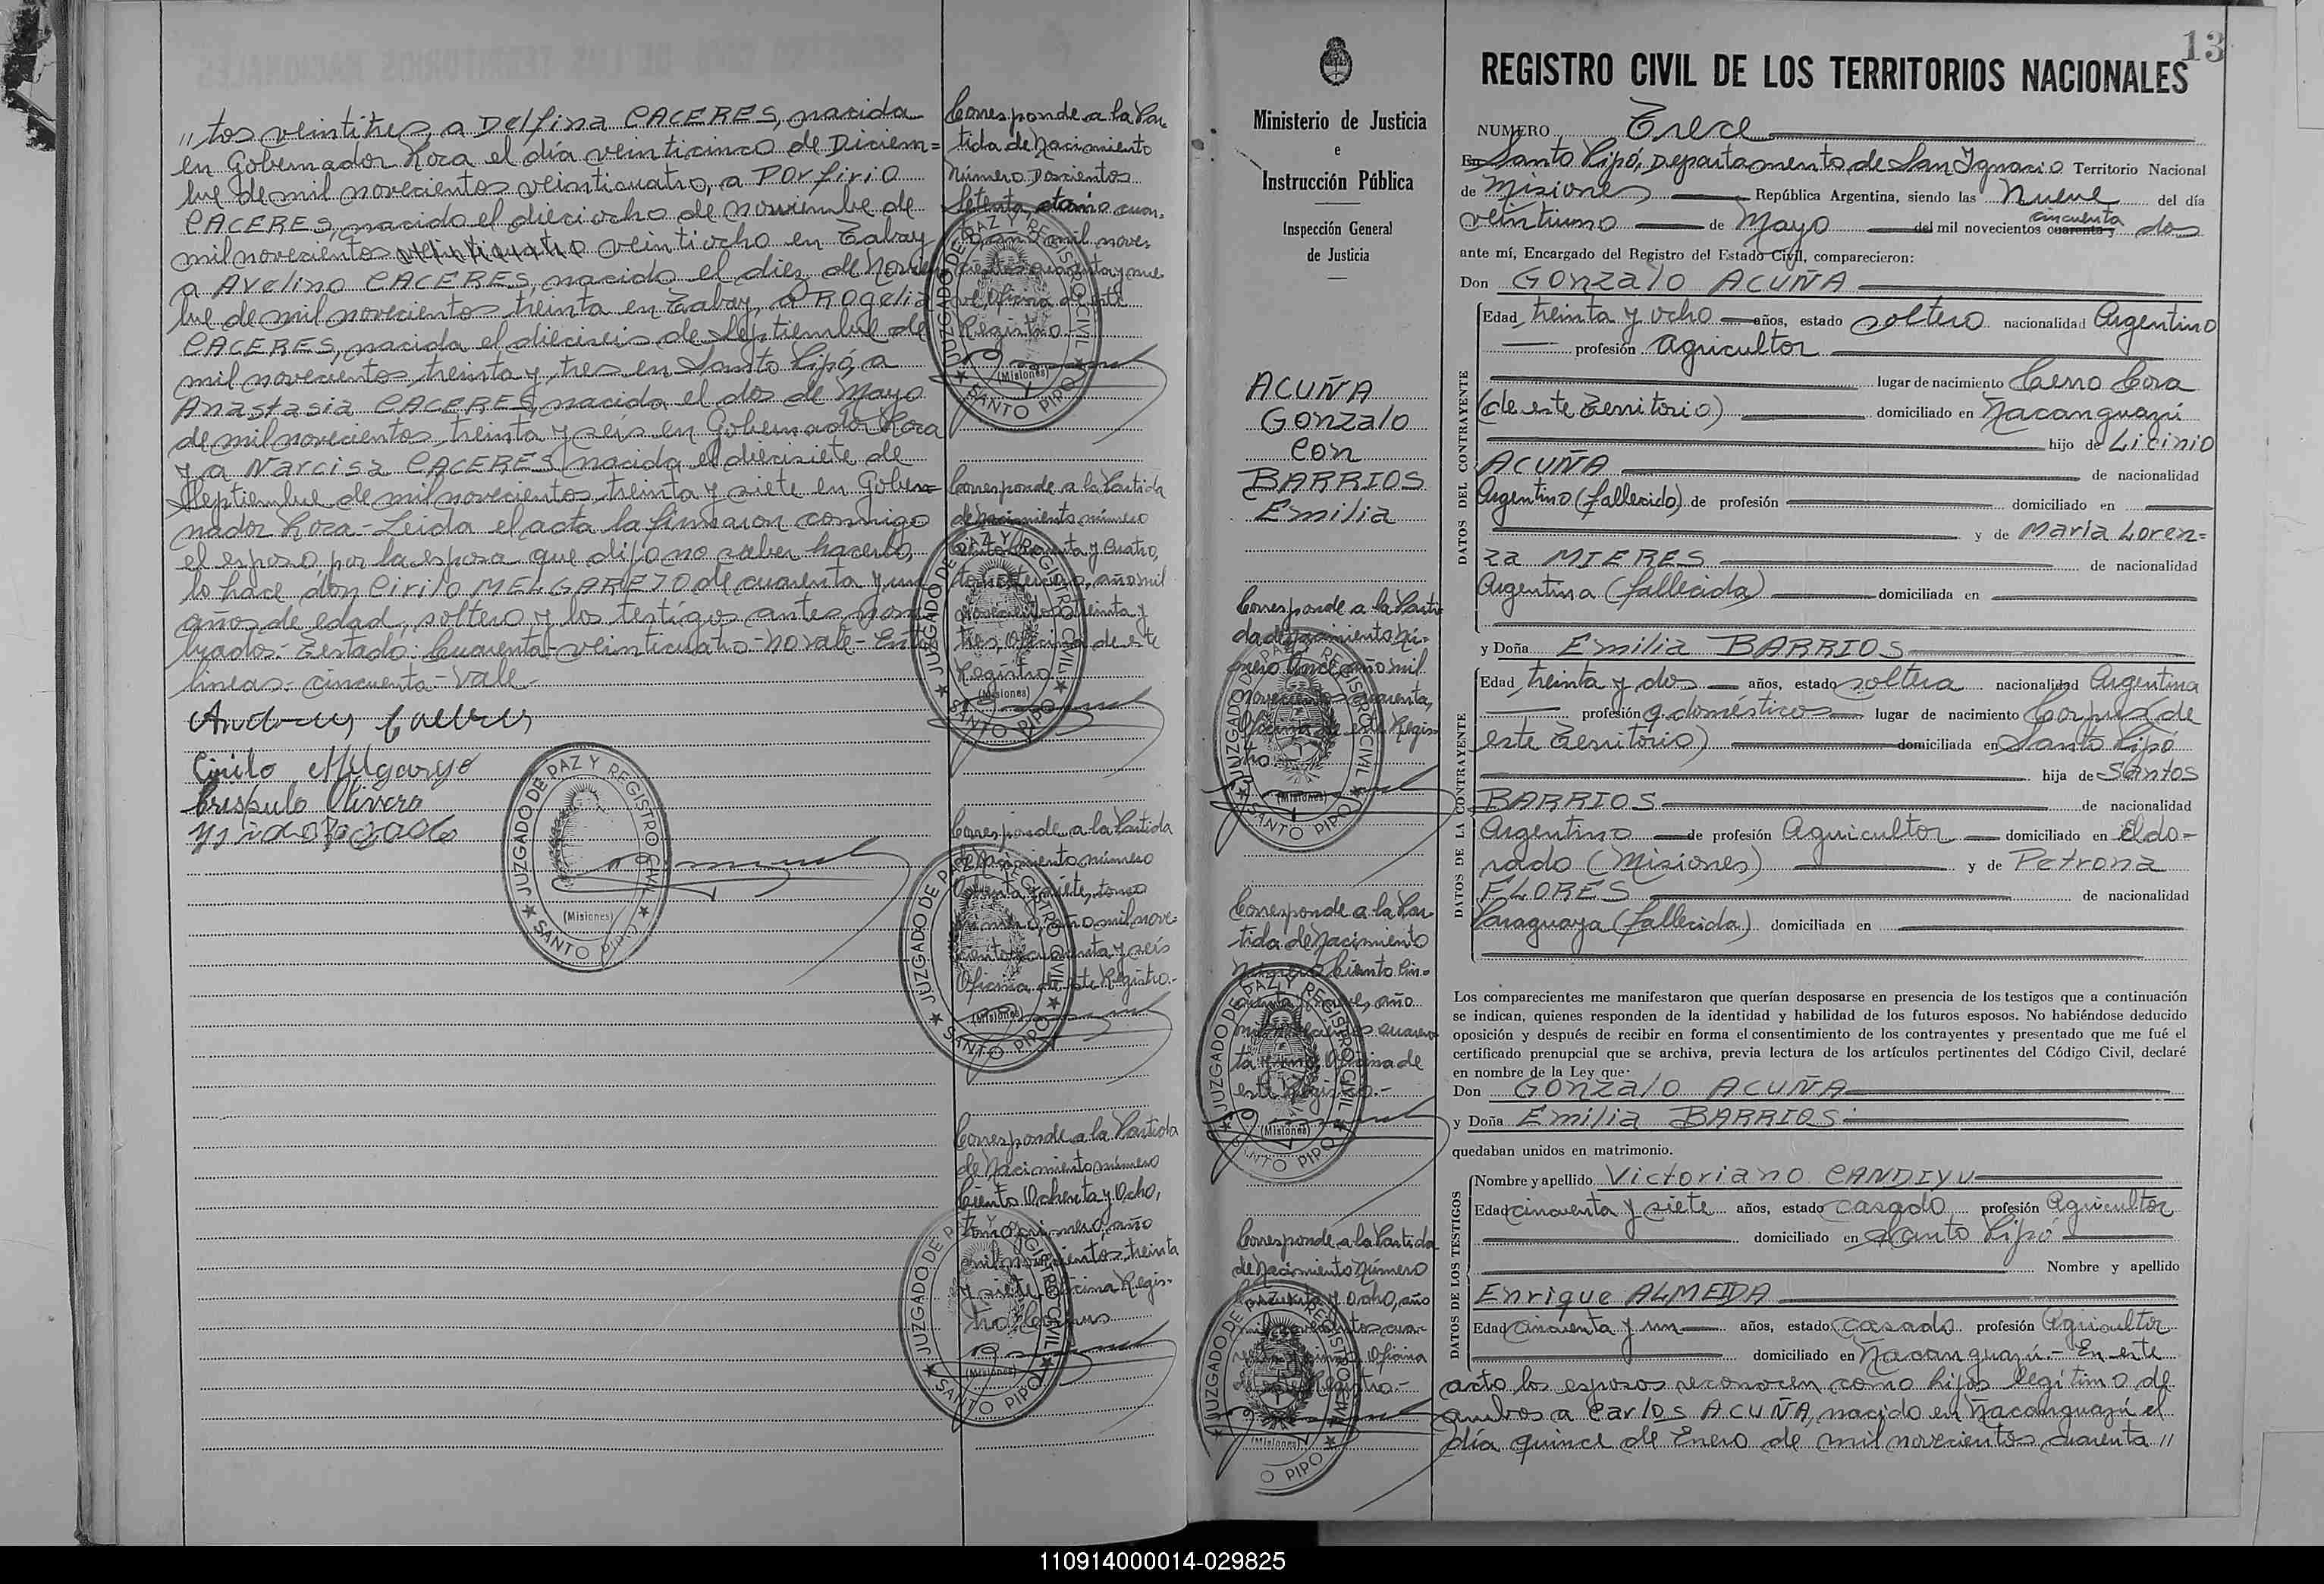 " tos veintitres, a Delfina CACERES, nacida
en Gobernador Roca el día veinticinco de Diciem=
bre de mil novecientos veinticuatro, a Porfirio
CACERES, nacido el dieciocho de noviembre de
mil novecientos veinticuatro veintiocho en Zabay
a Avelino CACERES, nacido el diez de Noviem
bre de mil novecientos treinta en Zabay, a Rogelia
CACERES, nacida el dieciseis de Septiembre de
mil novecientos treinta y tres en Santo Pipó, a
Anastasia CACERES, nacida el dos de Mayo
de mil novecientos treinta y seis en Gobernador Roca
y a Narcisa CACERES, nacida el diecisiete de
Septiembre de mil novecientos treinta y siete en Gober=
nador Roca - Leida el acta la firmaron conmigo
el esposo, por la esposa que dijo no saber hacerlo,
lo hace don Cirilo MELGAREJO de cuarenta y un
años de edad, soltero y los testigos antes nom
brados.- Testado: Cuarenta - veinticuatro - no vale - Entre
lineas.- cincuenta - Vale -
Cirilo Melgarejo
Crispulo Olivera
JUZGADO DE PAZ Y REGISTRO CIVIL
(Misiones)
SANTO PIPO
Corresponde a la Par
tida de Nacimiento
Número Doscientos
Setenta, tomo cuar
to, año mil nove
cientos cuarenta y nue
ve, Oficina de este
Registro
JUZGADO DE PAZ Y REGISTRO CIVIL
(Misiones)
SANTO PIPO
Corresponde a la Partida
de Nacimiento número
y Cuatro,
año mil
novecientos treinta y
tres, Oficina de este
Registro
JUZGADO DE PAZ Y REGISTRO CIVIL
(Misiones)
SANTO PIPO
Corresponde a la Partida
de Nacimiento número
Ochenta y siete, tomo
primero, año mil nove=
cientos cuarenta y seis
Oficina de este Registro.-
JUZGADO DE PAZ Y REGISTRO CIVIL
(Misiones)
SANTO PIPO
Corresponde a la Partida
de Nacimiento número
Ciento Ochenta y Ocho,
tomo primero, año
mil novecientos treinta
y siete, Oficina Regis=
tro de Corpus
JUZGADO DE PAZ Y REGISTRO CIVIL
(Misiones)
SANTO PIPO
Ministerio de Justicia
e
Instrucción Pública
Inspección General
de Justicia
ACUÑA
Gonzalo
con
BARRIOS
Emilia
Corresponde a la Parti
da de Nacimiento Nú=
mero Once año mil
novecientos cuarenta,
Oficina de este Regis=
tro.-
JUZGADO DE PAZ Y REGISTRO CIVIL
(Misiones)
SANTO PIPO
Corresponde a la Par
tida de Nacimiento
Número Ciento Cin=
cuenta y nueve, año
mil novecientos cuaren=
ta y uno Oficina de
este Registro.-
JUZGADO DE PAZ Y REGISTRO CIVIL
(Misiones)
SANTO PIPO
Corresponde a la Partida
de Nacimiento Número
y Ocho, año
mil novecientos cua=
Oficina
de este Registro.-
JUZGADO DE PAZ Y REGISTRO CIVIL
(Misiones)
O PIPO
13
REGISTRO CIVIL DE LOS TERRITORIOS NACIONALES
NUMERO Trece
En Santo Pipó, Departamento de San Ignacio Territorio Nacional
de Misiones República Argentina, siendo las Nueve del día
cincuenta
veintiuno de Mayo del mil novecientos cuarenta y dos
ante mí, Encargado del Registro del Estado Civil, comparecieron:
Don Gonzalo ACUÑA
DATOS DEL CONTRAYENTE
Edad treinta y ocho años, estado soltero nacionalidad Argentino
profesión agricultor
lugar de nacimiento Cerro Cora
(de este Territorio) domiciliado en Ñacanguazú
hijo de Licinio
ACUÑA de nacionalidad
Argentino (fallecido) de profesión domiciliado en
y de Maria Loren=
za MIERES de nacionalidad
Argentina (fallecida) domiciliada en
y Doña Emilia BARRIOS
DATOS DE LA CONTRAYENTE
Edad treinta y dos años, estado soltera nacionalidad Argentina
profesión q. domésticos lugar de nacimiento Corpus (de
este Territorio) domiciliada en Santo Pipó
hija de Santos
BARRIOS de nacionalidad
Argentino de profesión Agricultor domiciliado en Eldo=
rado (Misiones) y de Petrona
FLORES de nacionalidad
Paraguaya (fallecida) domiciliada en
Los comparecientes me manifestaron que querían desposarse en presencia de los testigos que a continuación
se indican, quienes responden de la identidad y habilidad de los futuros esposos. No habiéndose deducido
oposición y después de recibir en forma el consentimiento de los contrayentes y presentado que me fué el
certificado prenupcial que se archiva, previa lectura de los artículos pertinentes del Código Civil, declaré
en nombre de la Ley que:
Don Gonzalo ACUÑA
y Doña Emilia BARRIOS
quedaban unidos en matrimonio.
DATOS DE LOS TESTIGOS
Nombre y apellido Victoriano CANDIYU
Edad cincuenta y siete años, estado casado profesión Agricultor
domiciliado en Santo Pipó
Nombre y apellido
Enrique ALMEIDA
Edad cincuenta y un años, estado casado profesión Agricultor
domiciliado en Ñacanguazú.- En este
acto los esposos reconocen como hijos legítimo de
ambos a Carlos ACUÑA, nacido en Ñacanguazú el
día quince de Enero de mil novecientos cuarenta "
110914000014-029825